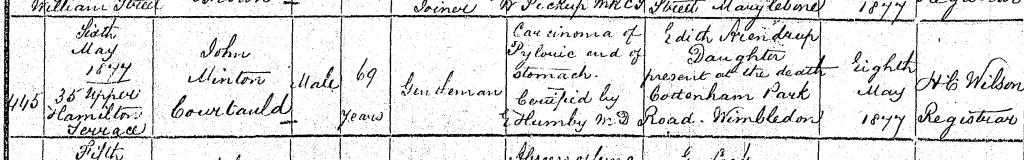 William Street
Joiner
W Pickup MRCS
Street Marylebone
1877
445
Sixth
May
1877
35 Upper
Hamilton
Terrace
John
Minton
Courtauld
Male
69
Years
Gentleman
Carcinoma of
Pylouic end of
Stomach.
Certified by
E Humby M D
Edith Arendrup
Daughter
present at the death
Cottenham Park
Road. Wimbledon
Eighth
May
1877
H C Wilson
Registrar
Fifth